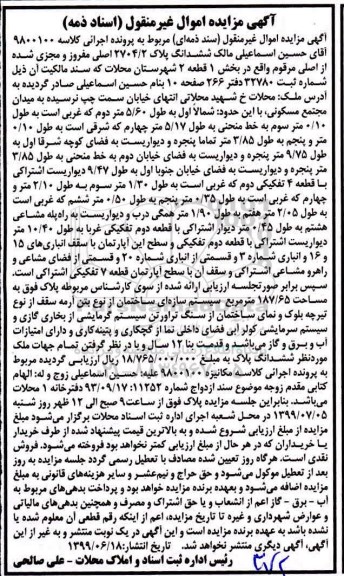 آگهی مزایده اموال غیرمنقول (اسناد ذمه)
آگهی مزایده اموال غیرمنقول (سند ذمه‌ای) مربوط به پرونده اجرائی کلاسه ۹۸۰۰۱۰۰
آقای حسین اسماعیلی مالک ششدانگ پلاک ۲۷۰۴/۲ اصلی مفروز و مجزی شده
از اصلی مرقوم واقع در بخش ۱ قطعه ۲ شهرستان محلات که سند مالکیت آن ذیل
شماره ثبت ۳۲۷۸۰ دفتر ۲۶۶ صفحه ۱۰ بنام حسین اسماعیلی صادر گردیده به
آدرس ملک: محلات خ شهید محلاتی انتهای خیابان سمت چپ نرسیده به میدان
مجتمع مسکونی، با این حدود: شمالا اول به طول ۵/۶۰ متر دوم که غربی است به طول
۰/۱۰ متر سوم به خط منحنی به طول ۵/۱۷ متر چهارم که شرقی است به طول ۰/۱۰
متر و پنجم به طول ۳/۸۵ متر تماما پنجره و دیواریست به فضای کوچه شرقا اول به
طول ۹/۷۵ متر پنجره و دیواریست به فضای خیابان دوم به خط منحنی به طول ۳/۸۵
متر پنجره و دیواریست به فضای خیابان جنوبا اول به طول ۹/۴۷ دیواریست اشتراکی
با قطعه ۴ تفکیکی دوم که غربی است به طول ۱/۳۰ متر سوم به طول ۲/۱۰ متر و
چهارم که غربی است به طول ۰/۱۰ متر پنجم به طول ۰/۵۰ متر ششم که غربی است
به طول ۲/۰۵ متر هفتم به طول ۱/۹۰ متر همگی درب و دیواریست به راه‌پله مشاعی
هشتم به طول متر دیوار اشتراکی با قطعه دوم تفکیکی غربا به طول ۱۰/۴۰ متر
دیواریست اشتراکی با قطعه دوم تفکیکی و سطح این آپارتمان با سقف انباری‌های ۱۵
و ۱۶ و انباری شماره ۳ و قسمتی از انباری شماره ۲۰ و قسمتی از فضای مشاعی و
راهرو مشاعی اشتراکی و سقف آن با سطح آپارتمان قطعه ۷ تفکیکی اشتراکی است.
سپس برابر صورتجلسه ارزیابی ارائه شده از سوی کارشناس مربوطه پلاک فوق به
مساحت ۱۸۷/۶۵ مترمربع سیستم سازه‌ای ساختمان از نوع بتن آرمه سقف از نوع
تیرچه بلوک و نمای ساختمان از سنگ تراورتن سیستم گرمایشی از بخاری گازی و
سیستم سرمایشی کولر آبی فضای داخلی نما از گچکاری و پتینه‌کاری و دارای امتیازات
آب و برق و گاز می‌باشد و قدمت بنا ۱۲ سال و با در نظر گرفتن تمام جهات ملک
موردنظر ششدانگ پلاک به مبلغ ریال ارزیابی گردیده مربوط
به پرونده اجرائی کلاسه مکانیزه ۹۸۰۰۱۰۰ علیه: حسین اسماعیلی زوج و له: الهام
کتابی مقدم زوجه موضوع سند ازدواج شماره ۱۱۲۵۲: ۹۳/۰۹/۱۷ دفترخانه ۱ محلات
می‌باشد. بنابراین جلسه مزایده پلاک فوق از ساعت ۹ صبح الی ۱۲ ظهر روز شنبه
۱۳۹۹/۰۷/۰۵ در محل شعبه اجرای اداره ثبت اسناد محلات برگزار می‌شود مبلغ
مزایده از مبلغ ارزیابی شروع شده و به بالاترین قیمت پیشنهاد شده از طرف خریدار
یا خریداران که در هر حال از مبلغ ارزیابی کمتر نخواهد بود فروخته می‌شود. فروش
نقدی است. هرگاه روز تعیین شده مصادف با تعطیل رسمی گردد جلسه مزایده به روز
بعد از تعطیل موکول می‌شود و حق حراج و نیم‌عشر و سایر هزینه‌های قانونی به مبلغ
مزایده اضافه می‌شود و بعهده برنده مزایده خواهد بود و پرداخت بدهی‌های مربوط به
آب - برق - گاز اعم از انشعاب و یا حق اشتراک و مصرف و همچنین بدهی‌های مالیاتی
و عوارض شهرداری و غیره تا تاریخ مزایده، اعم از اینکه رقم قطعی آن معلوم شده یا
نشده باشد به عهده برنده مزایده است و این آگهی در یک نوبت منتشر و به غیر از این
آگهی، آگهی دیگری منتشر نخواهد شد. تاریخ انتشار: ۱۳۹۹/۰۶/۱۸
رئیس اداره ثبت اسناد و املاک محلات - علی صالحی